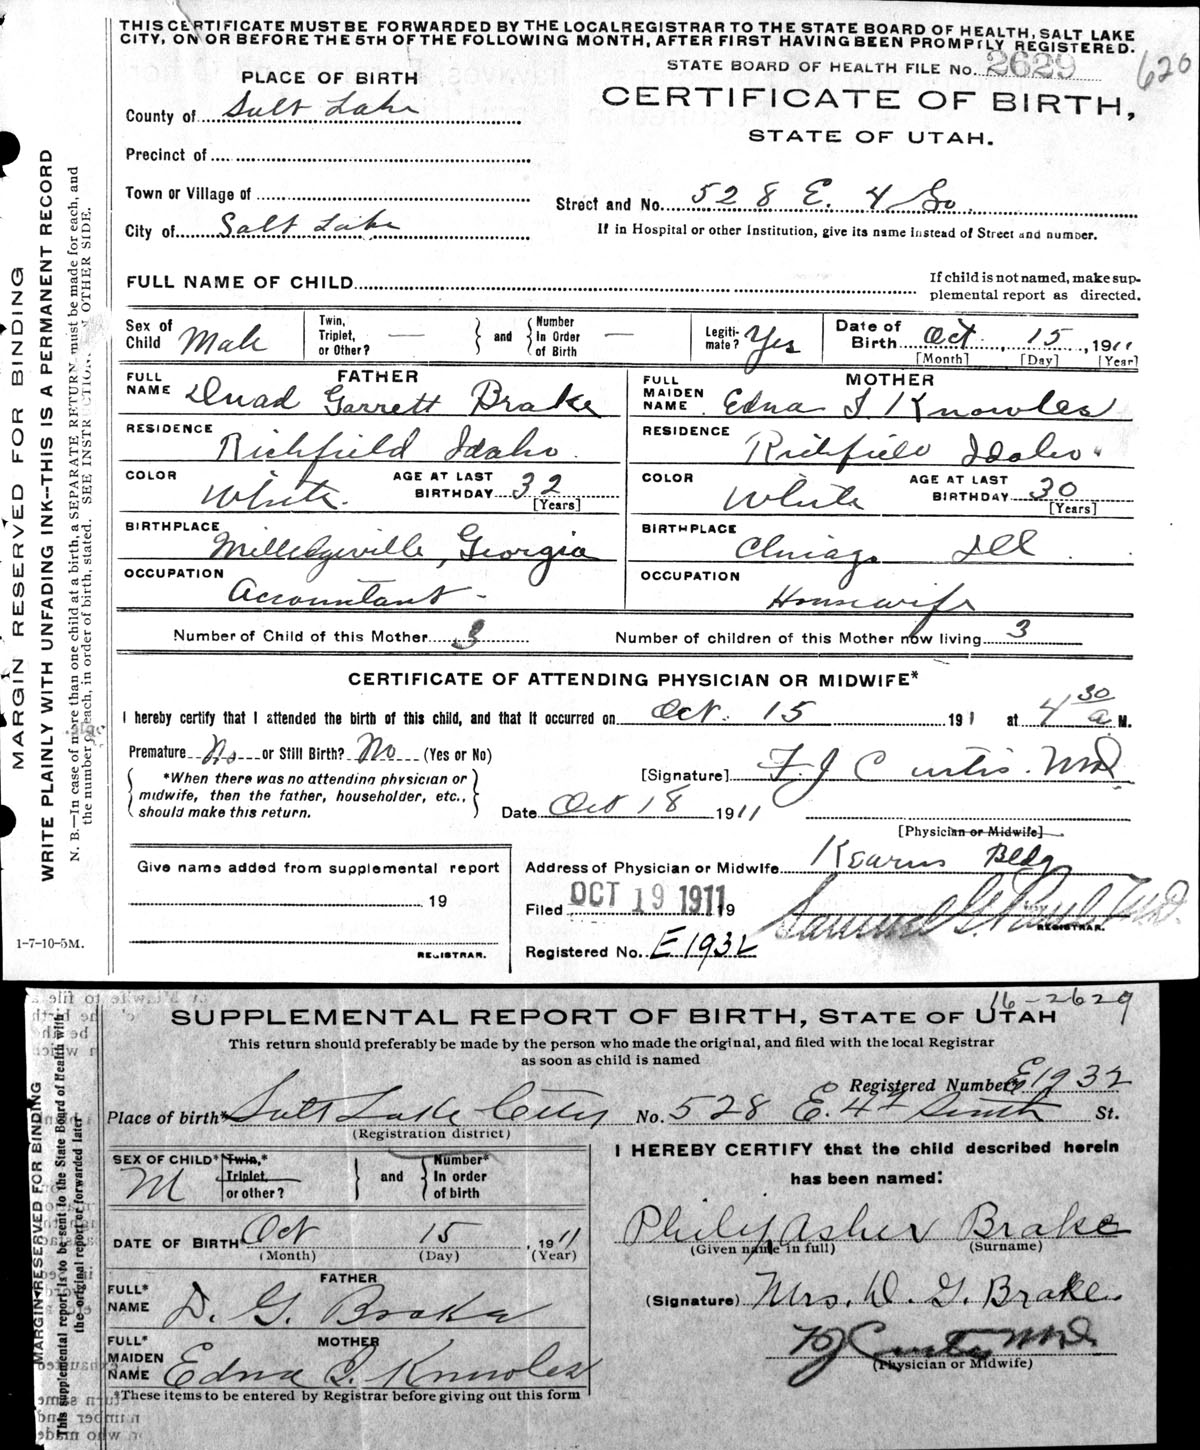 THIS CERTIFICATE MUST BE FORWARDED BY THE LOCAL REGISTRAR TO THE STATE BOARD OF HEALTH, SALT LAKE
CITY, ON OR BEFORE THE 5TH OF THE FOLLOWING MONTH, AFTER FIRST HAVING BEEN PROMPTLY REGISTERED.
STATE BOARD OF HEALTH FILE No. 2629
620
PLACE OF BIRTH
CERTIFICATE OF BIRTH,
STATE OF UTAH.
County of Salt Lake
Precinct of
Town or Village of
Street and No. 528 E. 4 So.
City of Salt Lake
If in Hospital or other Institution, give its name instead of Street and number.
FULL NAME OF CHILD
If child is not named, make sup-
plemental report as directed.
Sex of Child Male
Twin, Triplet, or Other? —
and
Number In Order of Birth —
Legiti-mate? Yes
Date of Birth Oct. 15, 1911
[Month] [Day] [Year]
FATHER
FULL NAME Garrett Brake
RESIDENCE Richfield Idaho.
COLOR White.
AGE AT LAST BIRTHDAY 32
[Years]
BIRTHPLACE Milledgeville, Georgia
OCCUPATION Accountant -
MOTHER
FULL MAIDEN NAME Edna I Knowles
RESIDENCE Richfield Idaho
COLOR White
AGE AT LAST BIRTHDAY 30
[Years]
BIRTHPLACE Chicago Ill.
OCCUPATION Housewife
Number of Child of this Mother 3
Number of children of this Mother now living 3
CERTIFICATE OF ATTENDING PHYSICIAN OR MIDWIFE*
I hereby certify that I attended the birth of this child, and that it occurred on Oct. 15 1911 at 4 30 a M.
Premature No or Still Birth? No (Yes or No)
*When there was no attending physician or
midwife, then the father, householder, etc.,
should make this return.
[Signature] F. J Curtis. MD.
Date Oct 18 1911
[Physician or Midwife]
Give name added from supplemental report
19
REGISTRAR.
Address of Physician or Midwife Kearns Bldg
Filed OCT 19 1911 19
Samuel G. Paul M.D.
REGISTRAR.
Registered No. E1932
MARGIN RESERVED FOR BINDING
WRITE PLAINLY WITH UNFADING INK--THIS IS A PERMANENT RECORD
N. B.—In case of more than one child at a birth, a SEPARATE RETURN must be made for each, and
the number of each, in order of birth, stated. SEE INSTRUCTIONS OTHER SIDE.
1-7-10-5M.
16-2629
SUPPLEMENTAL REPORT OF BIRTH, STATE OF UTAH
This return should preferably be made by the person who made the original, and filed with the local Registrar
as soon as child is named
Registered Number E1932
Place of birth* Salt Lake City No. 528 E. 4th South St.
(Registration district)
SEX OF CHILD* M
Twin,* Triplet, or other?
and
Number* In order of birth
DATE OF BIRTH Oct 15, 1911
(Month) (Day) (Year)
FATHER
FULL* NAME D. G. Brake
MOTHER
FULL* MAIDEN NAME Edna I. Knowles
*These items to be entered by Registrar before giving out this form
I HEREBY CERTIFY that the child described herein
has been named:
Philip Asher Brake
(Given name in full) (Surname)
(Signature) Mrs. D. G. Brake
F J Curtis MD.
(Physician or Midwife)
MARGIN RESERVED FOR BINDING
This supplemental report is to be sent to the State Board of Health with
the original report or forwarded later